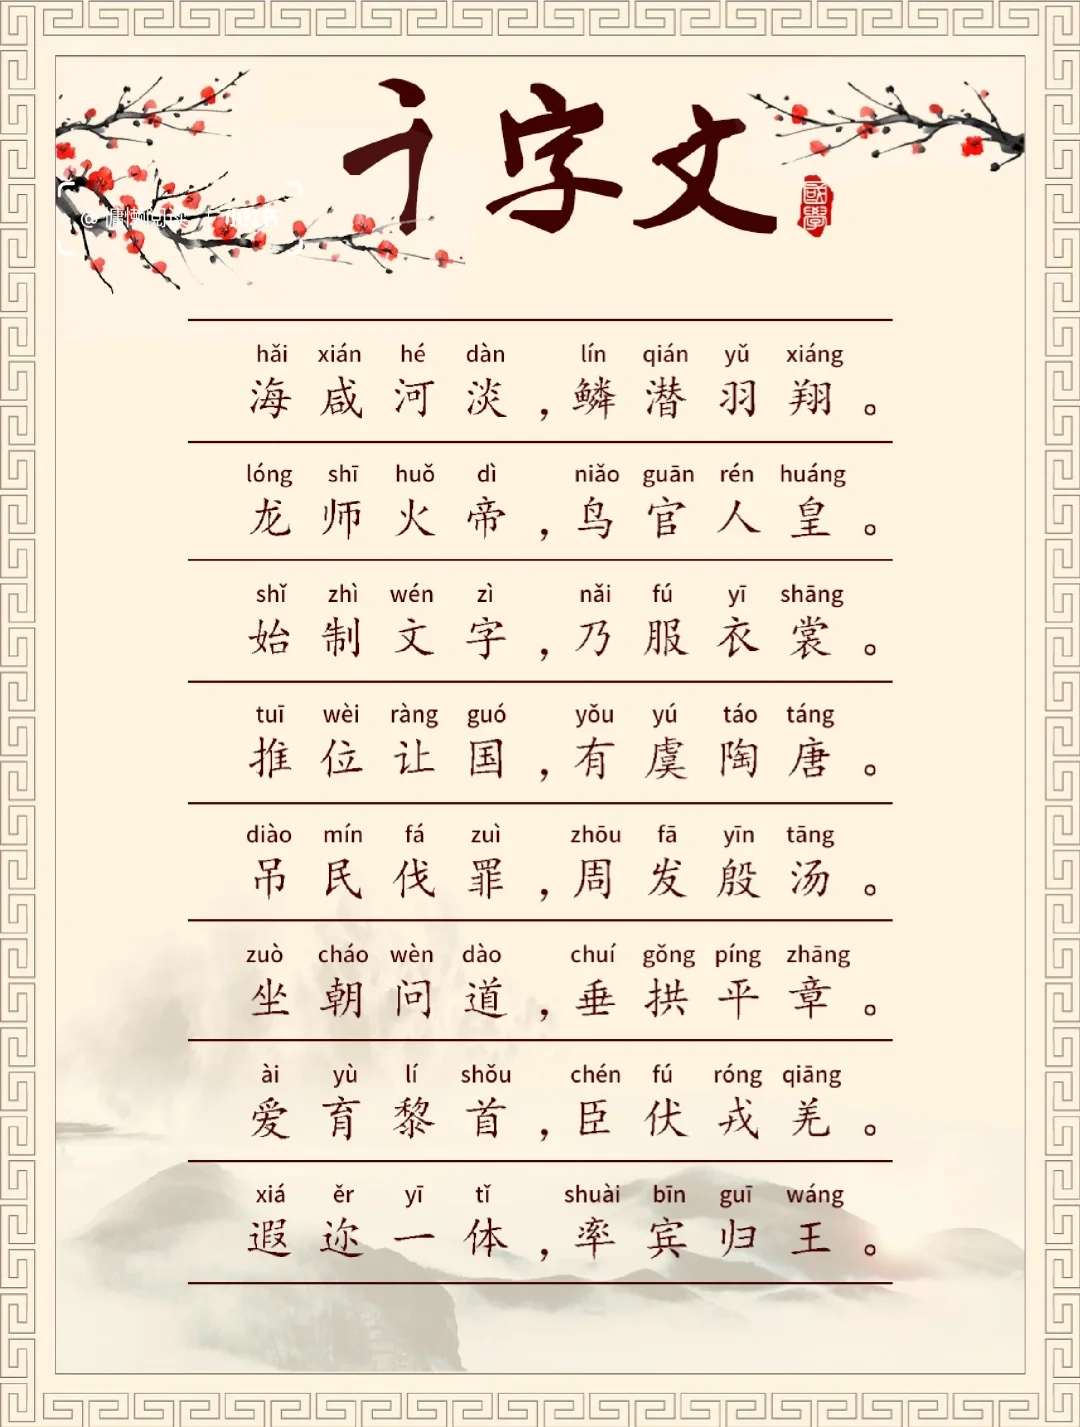 千字文
國學
hǎi xián hé dàn lín qián yǔ xiáng
海咸河淡，鳞潜羽翔。
lóng shī huǒ dì niǎo guān rén huáng
龙师火帝，鸟官人皇。
shǐ zhì wén zì nǎi fú yī shāng
始制文字，乃服衣裳。
tuī wèi ràng guó yǒu yú táo táng
推位让国，有虞陶唐。
diào mín fá zuì zhōu fā yīn tāng
吊民伐罪，周发殷汤。
zuò cháo wèn dào chuí gǒng píng zhāng
坐朝问道，垂拱平章。
ài yù lí shǒu chén fú róng qiāng
爱育黎首，臣伏戎羌。
xiá ěr yī tǐ shuài bīn guī wáng
遐迩一体，率宾归王。